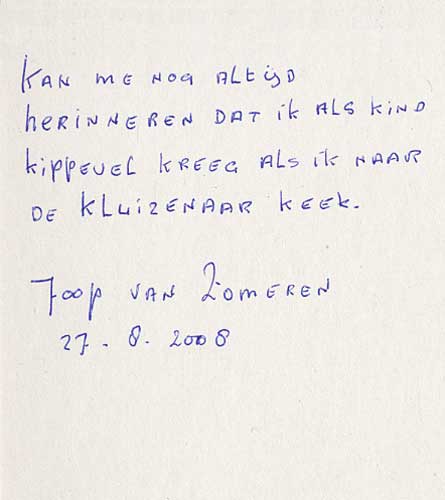 Kan me nog altijd
herinneren dat ik als kind
kippevel kreeg als ik naar
de kluizenaar keek.
Joop van Zomeren
27.8.2008